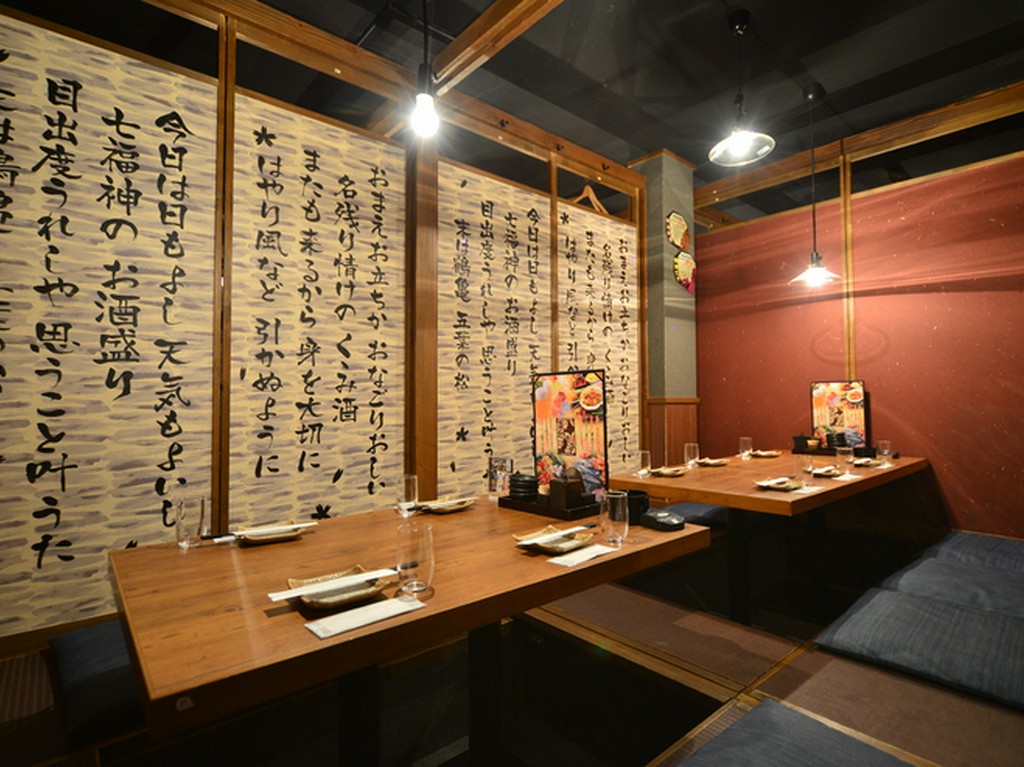 おまえお立ちか おなごりおしい
名残り情けの く
またも来るから 身
はやり風など 引か
*
今日は日もよし 天気
七福神の お酒盛り
目出度うれしや 思うこと叶う
末は鶴亀 五葉の松
*
おまえお立ちか おなごりおしい
名残り情けの くみ酒
またも来るから 身を大切に
はやり風など 引かぬように
*
今日は日もよし 天気もよいし
七福神の お酒盛り
目出度うれしや 思うこと叶うた
末は鶴亀